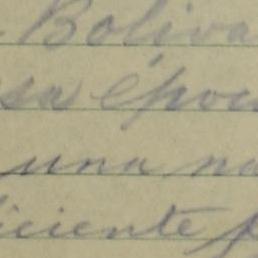 Boliva
sa épou
una na
iciente p